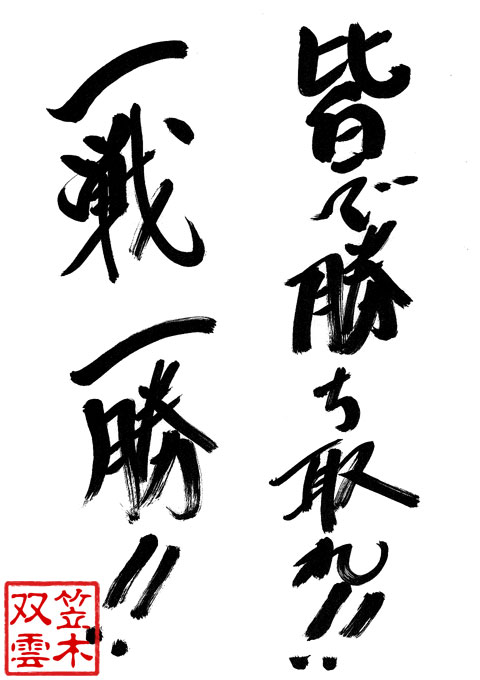 皆で勝ち取れ!!
一戦一勝!!
笠木
双雲